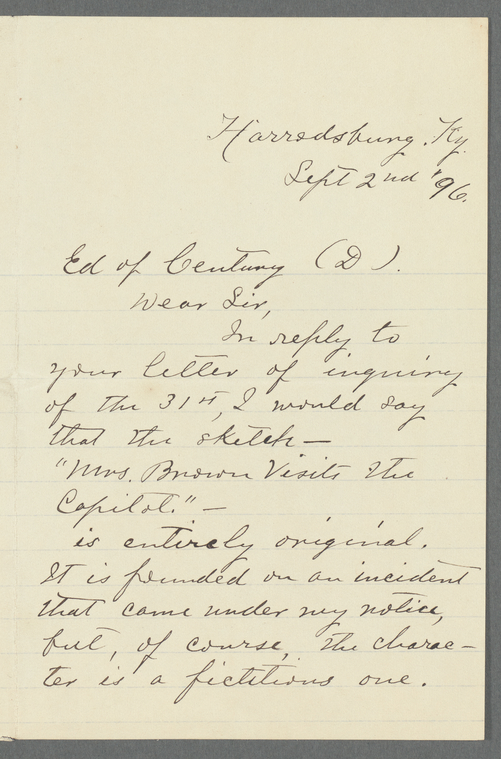 Harrodsburg, Ky.
Sept 2nd '96.
Ed of Century (D).
Dear Sir,
In reply to
your letter of inquiry
of the 31st, I would say
that the sketch —
"Mrs. Brown Visits the
Capitol." —
is entirely original.
It is founded on an incident
that came under my notice,
but, of course, the charac-
ter is a fictitious one.